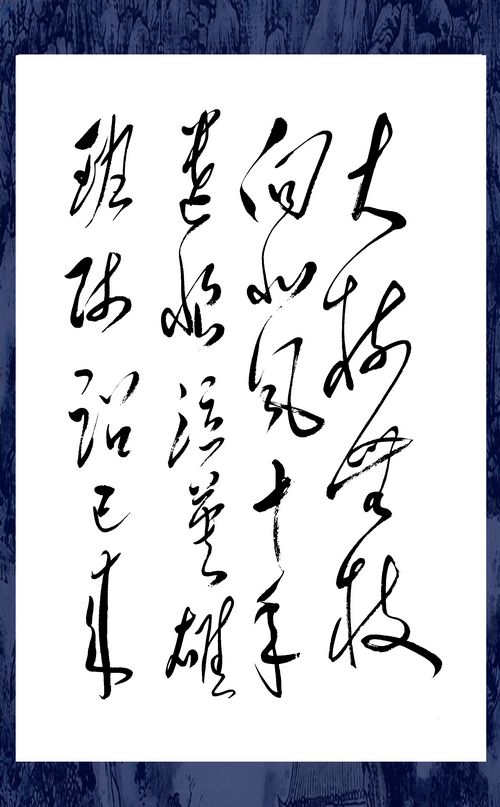 大树無枝
向北风十年
遗恨泣英雄
班师诏已来